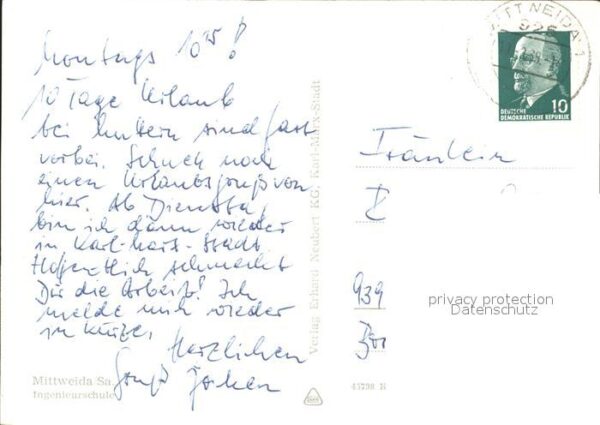 Montags 10²⁵!
10 Tage Urlaub
bei Muttern sind fast
vorbei. Schnell noch
einen Urlaubsgruß von
hier. Ab Dienstag
bin ich dann wieder
in Karl-Marx-Stadt.
Hoffentlich schmeckt
Dir die Arbeit! Ich
melde mich wieder
in Kürze.
Herzlichen
Gruß Jochen
Mittweida Sa.
Ingenieurschule
Verlag Erhard Neubert KG, Karl-Marx-Stadt
MITTWEIDA 1
925
10
DEUTSCHE
DEMOKRATISCHE REPUBLIK
Fräulein
R
939
privacy protection
Datenschutz
45798 R